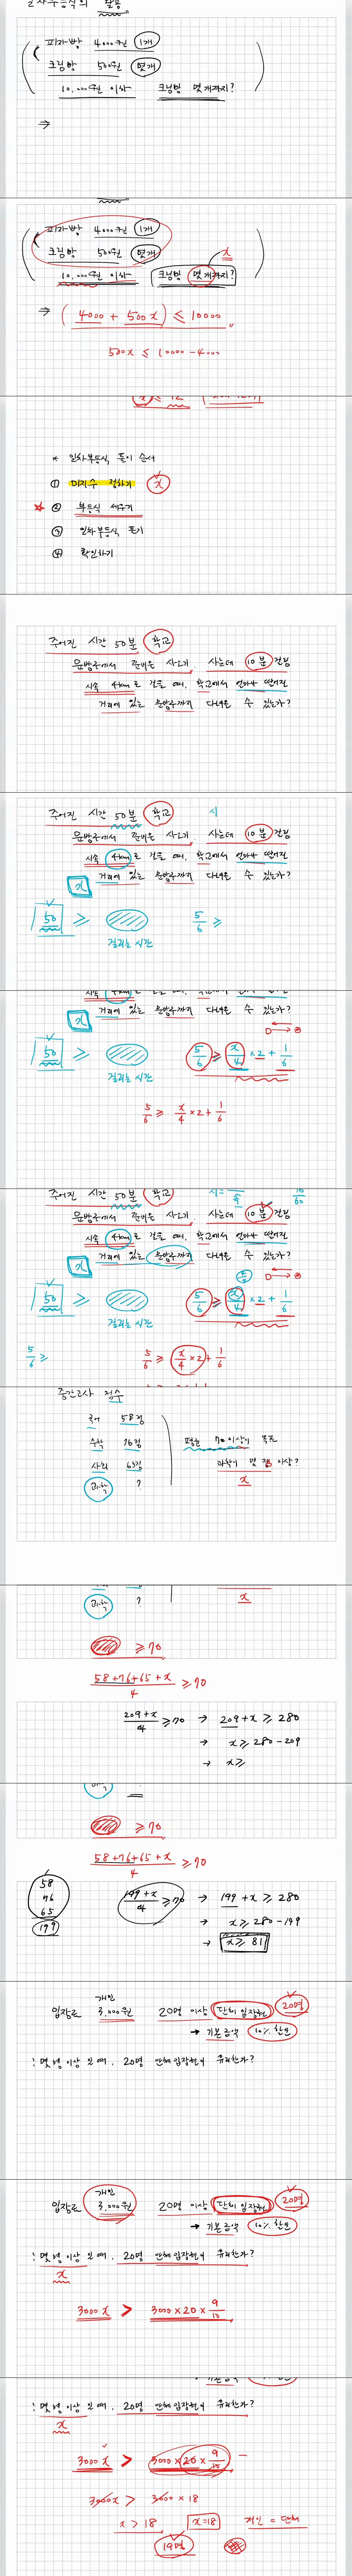 일차부등식의 활용
피자빵 4000원 1개
크림빵 500원 몇개
10,000원 이하 크림빵 몇개까지?
⇒
피자빵 4000원 1개
크림빵 500원 몇개
x
10,000원 이하 크림빵 몇개까지?
⇒ (4000 + 500x) ≤ 10000
500x ≤ 10000 - 4000
x ≤ 12
* 일차부등식 풀이 순서
① 미지수 정하기 x
② 부등식 세우기
③ 일차부등식 풀기
④ 확인하기
주어진 시간 50분 학교
문방구에서 준비물 사오기, 사는데 10분 걸림
시속 4km로 걸을 때, 학교에서 얼마나 떨어진
거리에 있는 문방구까지 다녀올 수 있는가?
주어진 시간 50분 학교 시
문방구에서 준비물 사오기, 사는데 10분 걸림
시속 4km로 걸을 때, 학교에서 얼마나 떨어진
x 거리에 있는 문방구까지 다녀올 수 있는가?
50 ≥ 5/6 ≥
걸리는 시간
시속 4km로 걸을 때, 학교에서 얼마나 떨어진
x 거리에 있는 문방구까지 다녀올 수 있는가?
50 ≥ 5/6 ≥ x/4 × 2 + 1/6
걸리는 시간
5/6 ≥ x/4 × 2 + 1/6
주어진 시간 50분 학교 10/60
문방구에서 준비물 사오기, 사는데 10분 걸림
시속 4km로 걸을 때, 학교에서 얼마나 떨어진
x 거리에 있는 문방구까지 다녀올 수 있는가?
50 ≥ 5/6 ≥ x/4 × 2 + 1/6
걸리는 시간
5/6 ≥ 5/6 ≥ x/4 × 2 + 1/6
중간고사 점수
국어 58점
수학 76점 평균 70 이상이 목표
사회 65점 과학이 몇 점 이상?
과학 ? x
과학 ? x
≥ 70
58+76+65+x/4 ≥ 70
209+x/4 ≥ 70 → 209 + x ≥ 280
→ x ≥ 280 - 209
→ x ≥
≥ 70
58+76+65+x/4 ≥ 70
58
76
65
199
199+x/4 ≥ 70 → 199 + x ≥ 280
→ x ≥ 280 - 199
→ x ≥ 81
개인
입장료 3,000원 20명 이상 단체 입장권 20명
→ 기본금액 10% 할인
: 몇 명 이상 일 때, 20명 단체 입장권이 유리한가?
개인
입장료 3,000원 20명 이상 단체 입장권 20명
→ 기본금액 10% 할인
: 몇 명 이상 일 때, 20명 단체 입장권이 유리한가?
x
3000x > 3000 × 20 × 9/10
: 몇 명 이상 일 때, 20명 단체 입장권이 유리한가?
x
3000x > 3000 × 20 × 9/10
3000x > 3000 × 18
x > 18 x = 18 개인 = 단체
19명